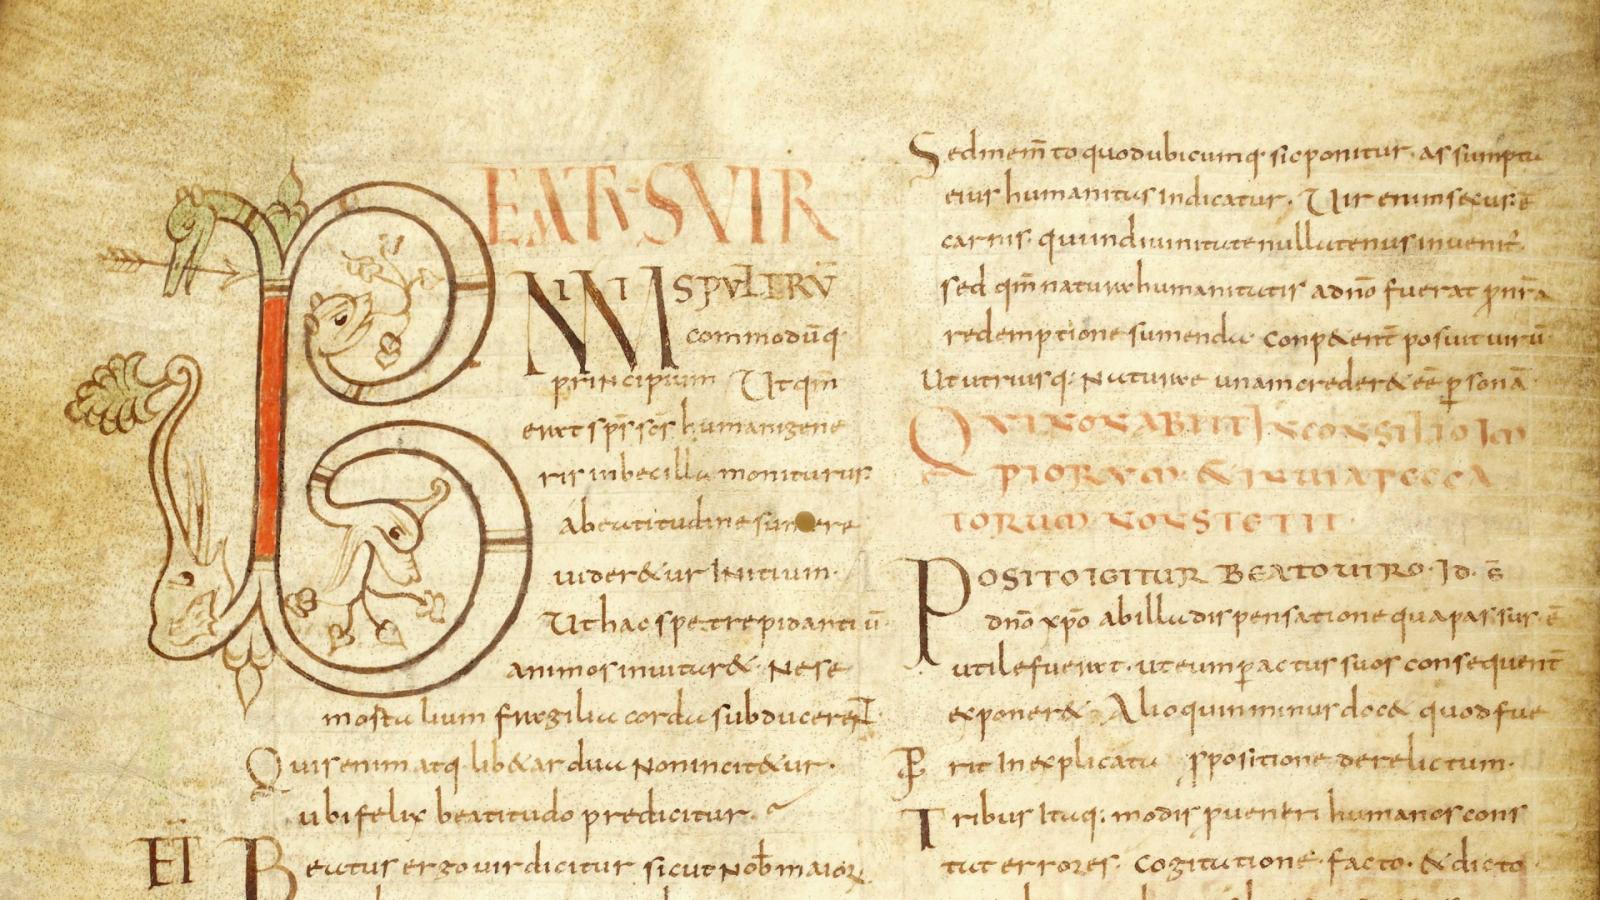 BEATUS VIR
NIMIS PULCHRŪ
commodūq·
principium Ut qm̄
erat sp̄s sc̄s humani gene
ris inbecilla moniturus
a beatitudine sumere
uider&ur Initium·
Ut hac spe trepidantiū
animos inuitar& · Nese
mortalium fragilia corda subducerent
Quis enim atq· lib& ardua Non incit&ur·
ubi felix beatitudo predicitur·
Beatus ergo uir dicitur sicut Nob̄ maior
Sed mem̄to quod ubicumq· sic ponitur· assumptu
eius humanitus Indicatur· Uir enim sexus ē
carnis· qui in diuinitate nullatenus inuenit̄·
sed qm̄ naturae humanitatis a dn̄o fuerat ꝓ nr̄a
redemptione sumenda· conp&ent̄ posuit uirū
Ut utriusq; Naturae unam creder& eē ꝑsonā
QUI NON ABIIT IN CONSILIO IM
PIORUM· & IN UIA PECCA
TORUM NON STETIT·
POSITO IGITUR BEATO UIRO· Id· ē
dn̄o xp̄o ab illa dispensatione qua passus· ē
utile fuerat· ut eum ꝑ actus suos consequent̄
exponer& · Alioquin minus doc& quod fue
rit Inexplicata ꝓpositione derelictum·
Tribus Itaq; modis ꝓueneri humanos cons
tat errores· Cogitatione· facto· & dicto